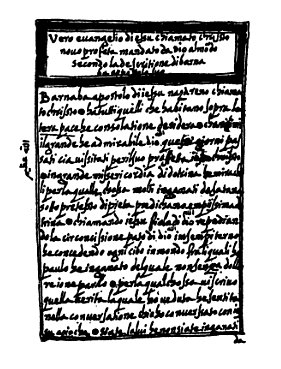 Vero euangelio di iessu chiamato chrissto
nouo profeta mandato da dio al mōdo
secondo la descritione di barna
ba apostolo suo
Barnaba apostolo di iessu nazareno chiama
to chrissto ha tutti quelli che habitano sopra la
terra pace he consolatione dessidera charissimi
il grande he admirabile dio questi giorni pas
sati cia uissitati per il suo profeta iessu chrissto
in grande missericordia di dotrina he miracol
li per laqualle chossa molti inganati da satana
sotto pretesto di pieta predicano empissima do
trina chiamando iessu fiolo di dio repudian
do la circoncissione pato di dio in sempiterno
he concedendo ogni cibo inmondo fra li quali he
paulo he inganato del quale non senza dolo
re ne parlo per la qual chossa ui scriuo
quella uerita laquale ho ueduta he sentita
nella conuerssatione che ho conuerssato con ie
ssu acioche siate salui he non siate inganati
da